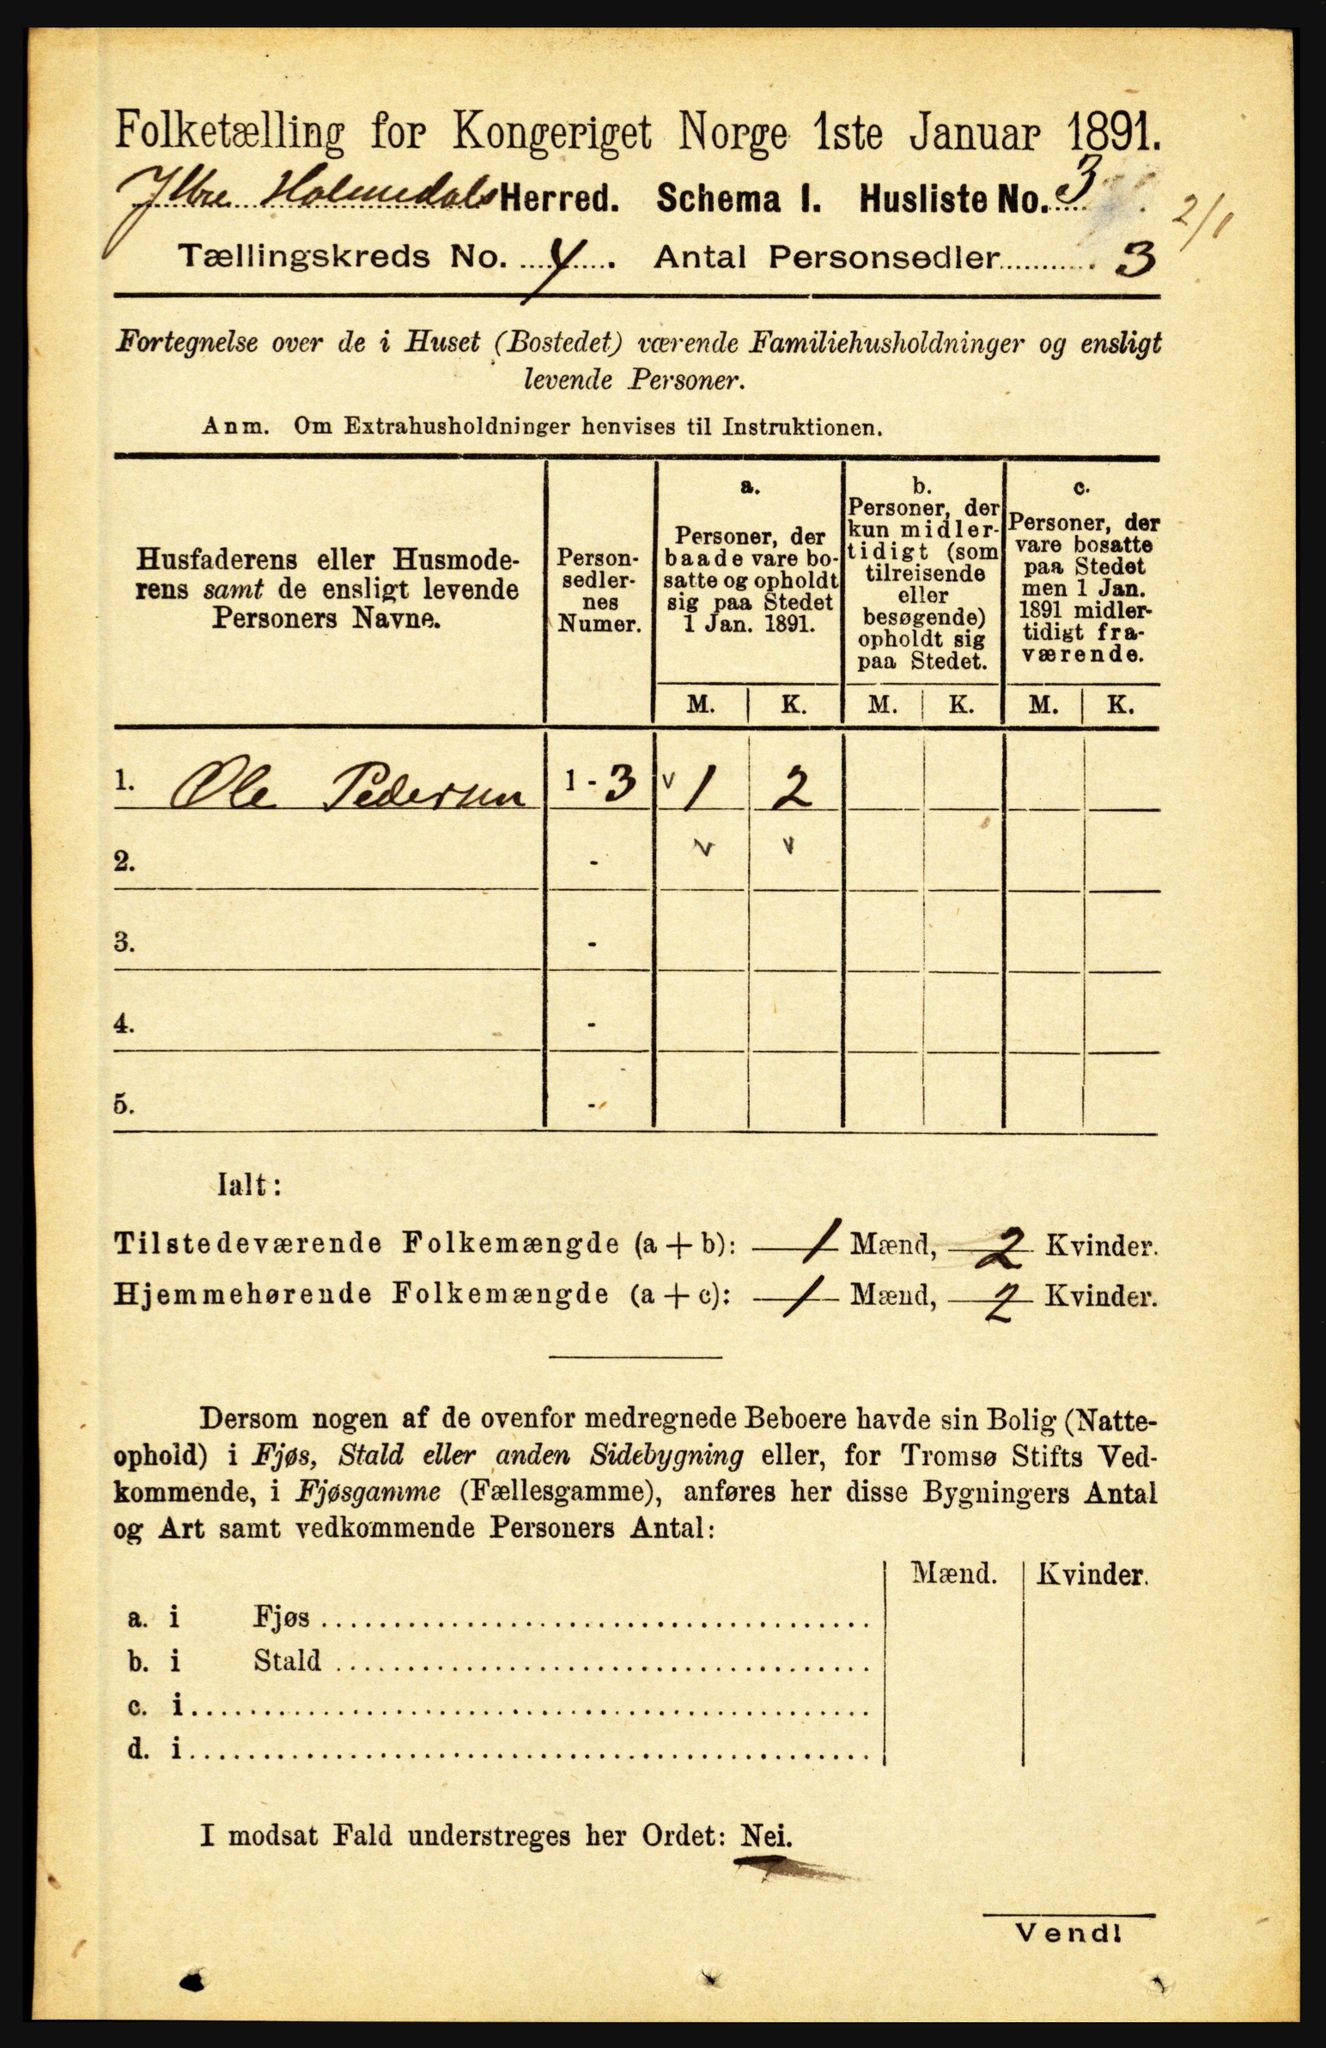 Folketælling for Kongeriget Norge 1ste Januar 1891.
Ytre Holmedals Herred. Schema I. Husliste No. 3
2/1
Tællingskreds No. 4. Antal Personsedler 3
Fortegnelse over de i Huset (Bostedet) værende Familiehusholdninger og ensligt
levende Personer.
Anm. Om Extrahusholdninger henvises til Instruktionen.
Husfaderens eller Husmode-
rens samt de ensligt levende
Personers Navne.
Person-
sedler-
nes
Numer.
a.
Personer, der
baade vare bo-
satte og opholdt
sig paa Stedet
1 Jan. 1891.
b.
Personer, der
kun midler-
tidigt (som
tilreisende
eller
besøgende)
opholdt sig
paa Stedet.
c.
Personer, der
vare bosatte
paa Stedet
men 1 Jan.
1891 midler-
tidigt fra-
værende.
M. K. M. K. M. K.
1. Ole Pedersen 1 - 3 v 1 2
2. - v v
3. -
4. -
5. -
Ialt:
Tilstedeværende Folkemængde (a + b): 1 Mænd, 2 Kvinder.
Hjemmehørende Folkemængde (a + c): 1 Mænd, 2 Kvinder.
Dersom nogen af de ovenfor medregnede Beboere havde sin Bolig (Natte-
ophold) i Fjøs, Stald eller anden Sidebygning eller, for Tromsø Stifts Ved-
kommende, i Fjøsgamme (Fællesgamme), anføres her disse Bygningers Antal
og Art samt vedkommende Personers Antal:
Mænd. Kvinder.
a. i Fjøs
b. i Stald
c. i
d. i
I modsat Fald understreges her Ordet: Nei.
Vend!